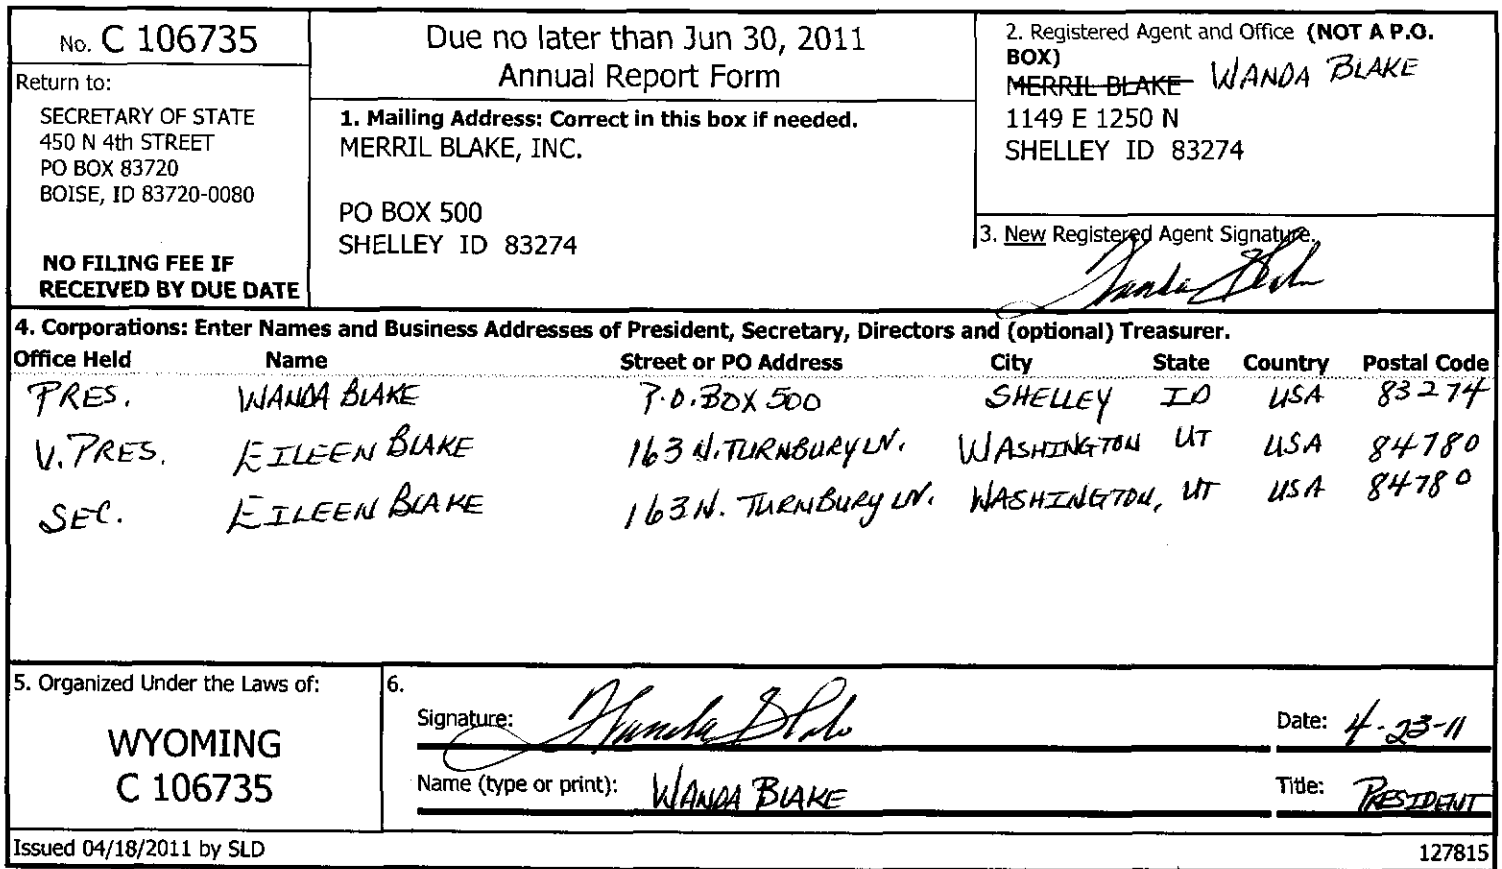 No. C 106735
Return to:
SECRETARY OF STATE
450 N 4th STREET
PO BOX 83720
BOISE, ID 83720-0080
NO FILING FEE IF
RECEIVED BY DUE DATE
Due no later than Jun 30, 2011
Annual Report Form
1. Mailing Address: Correct in this box if needed.
MERRIL BLAKE, INC.
PO BOX 500
SHELLEY ID 83274
2. Registered Agent and Office (NOT A P.O.
BOX)
MERRIL BLAKE WANDA BLAKE
1149 E 1250 N
SHELLEY ID 83274
3. New Registered Agent Signature.
Wanda Blake
4. Corporations: Enter Names and Business Addresses of President, Secretary, Directors and (optional) Treasurer.
Office Held Name Street or PO Address City State Country Postal Code
PRES. WANDA BLAKE P.O. BOX 500 SHELLEY ID USA 83274
V. PRES. EILEEN BLAKE 163 N. TURNBURY LN. WASHINGTON UT USA 84780
SEC. EILEEN BLAKE 163 N. TURNBURY LN. WASHINGTON, UT USA 84780
5. Organized Under the Laws of:
WYOMING
C 106735
6.
Signature: Wanda Blake Date: 4-23-11
Name (type or print): WANDA BLAKE Title: PRESIDENT
Issued 04/18/2011 by SLD 127815